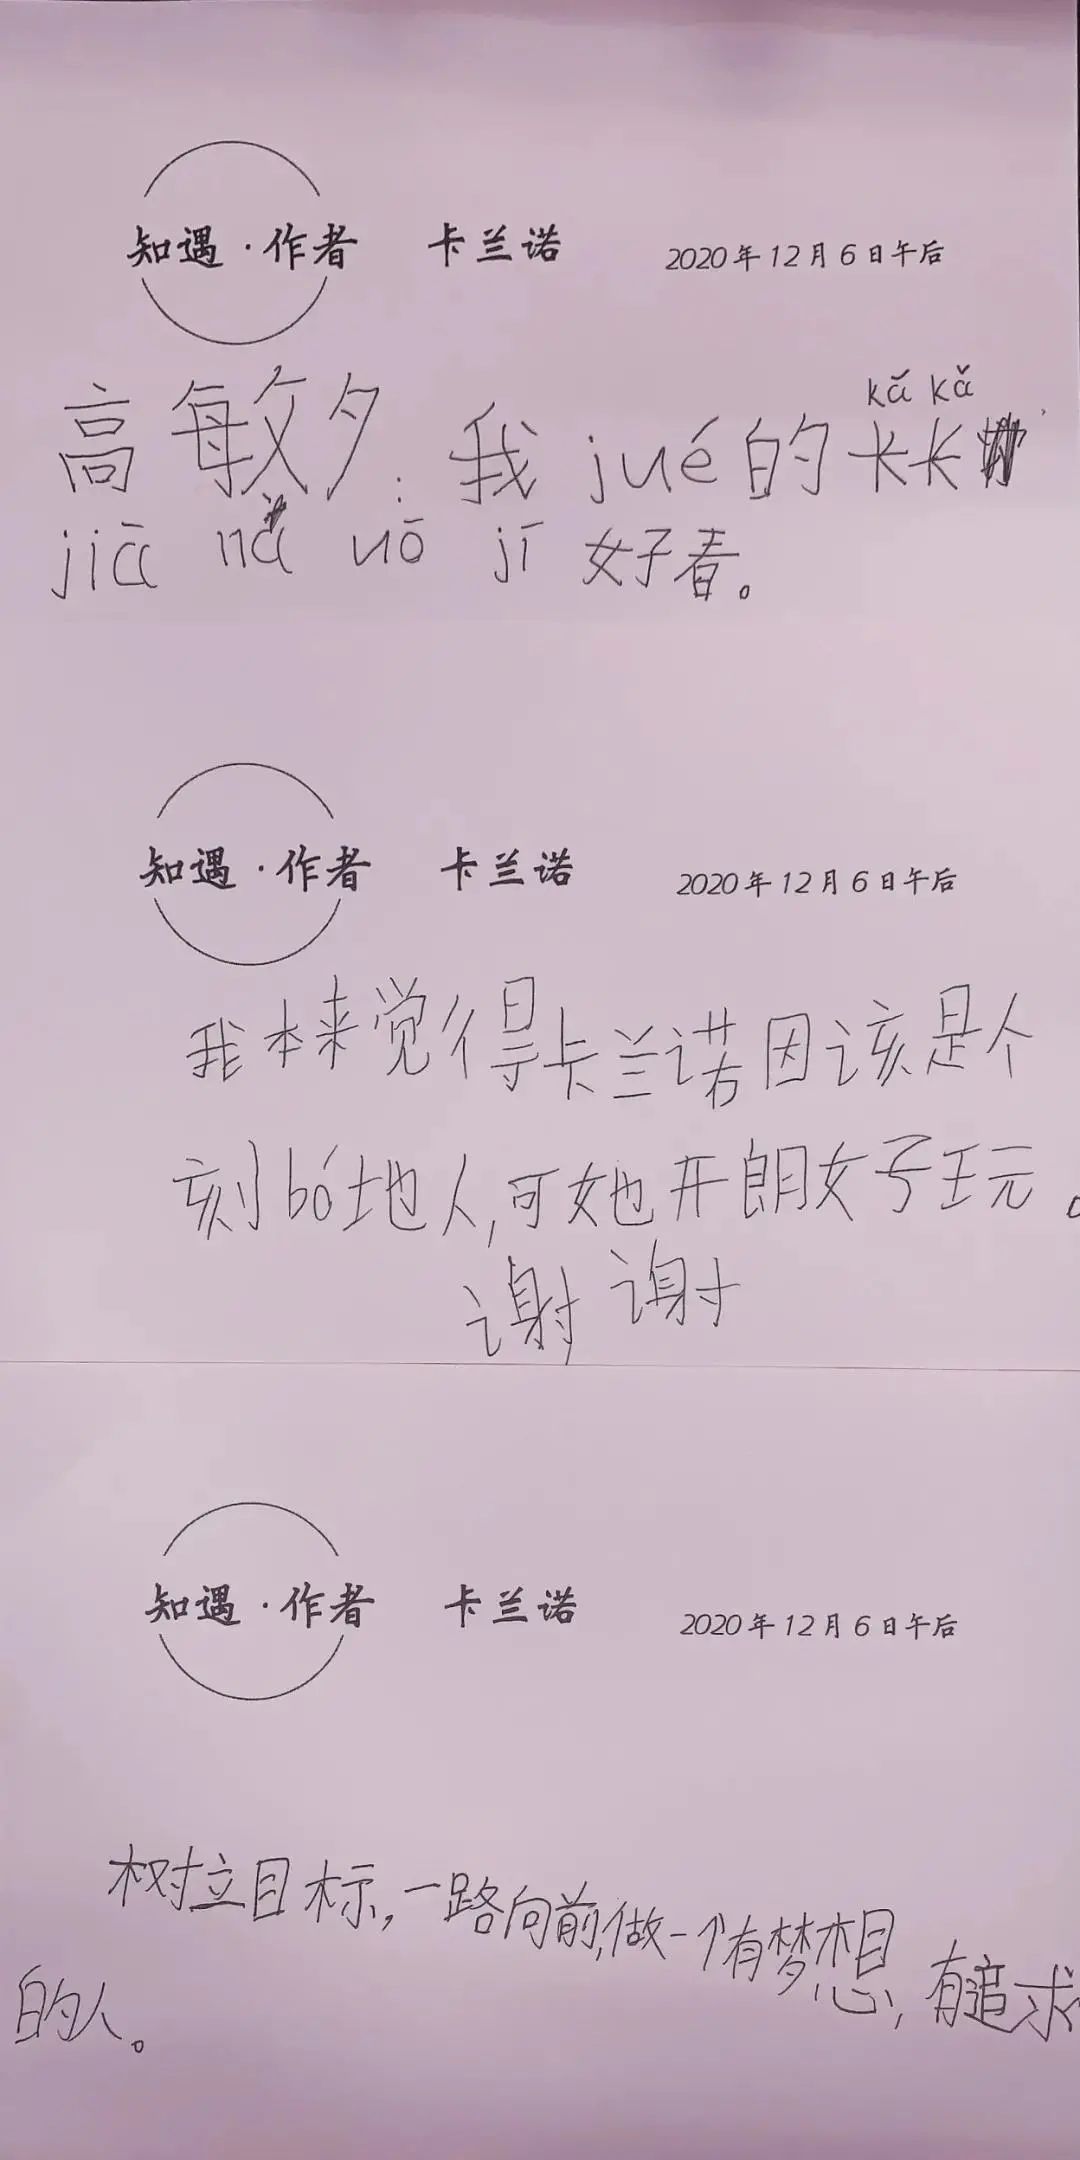 知遇·作者 卡兰诺 2020年12月6日午后
kǎ kǎ
高敏夕:我jué的卡卡
jiā nǎ uō jī 好看。
知遇·作者 卡兰诺 2020年12月6日午后
我本来觉得卡兰诺因该是个
刻bó地人,可她开朗好玩。
谢谢
知遇·作者 卡兰诺 2020年12月6日午后
树立目标,一路向前,做一个有梦想,有追求
的人。